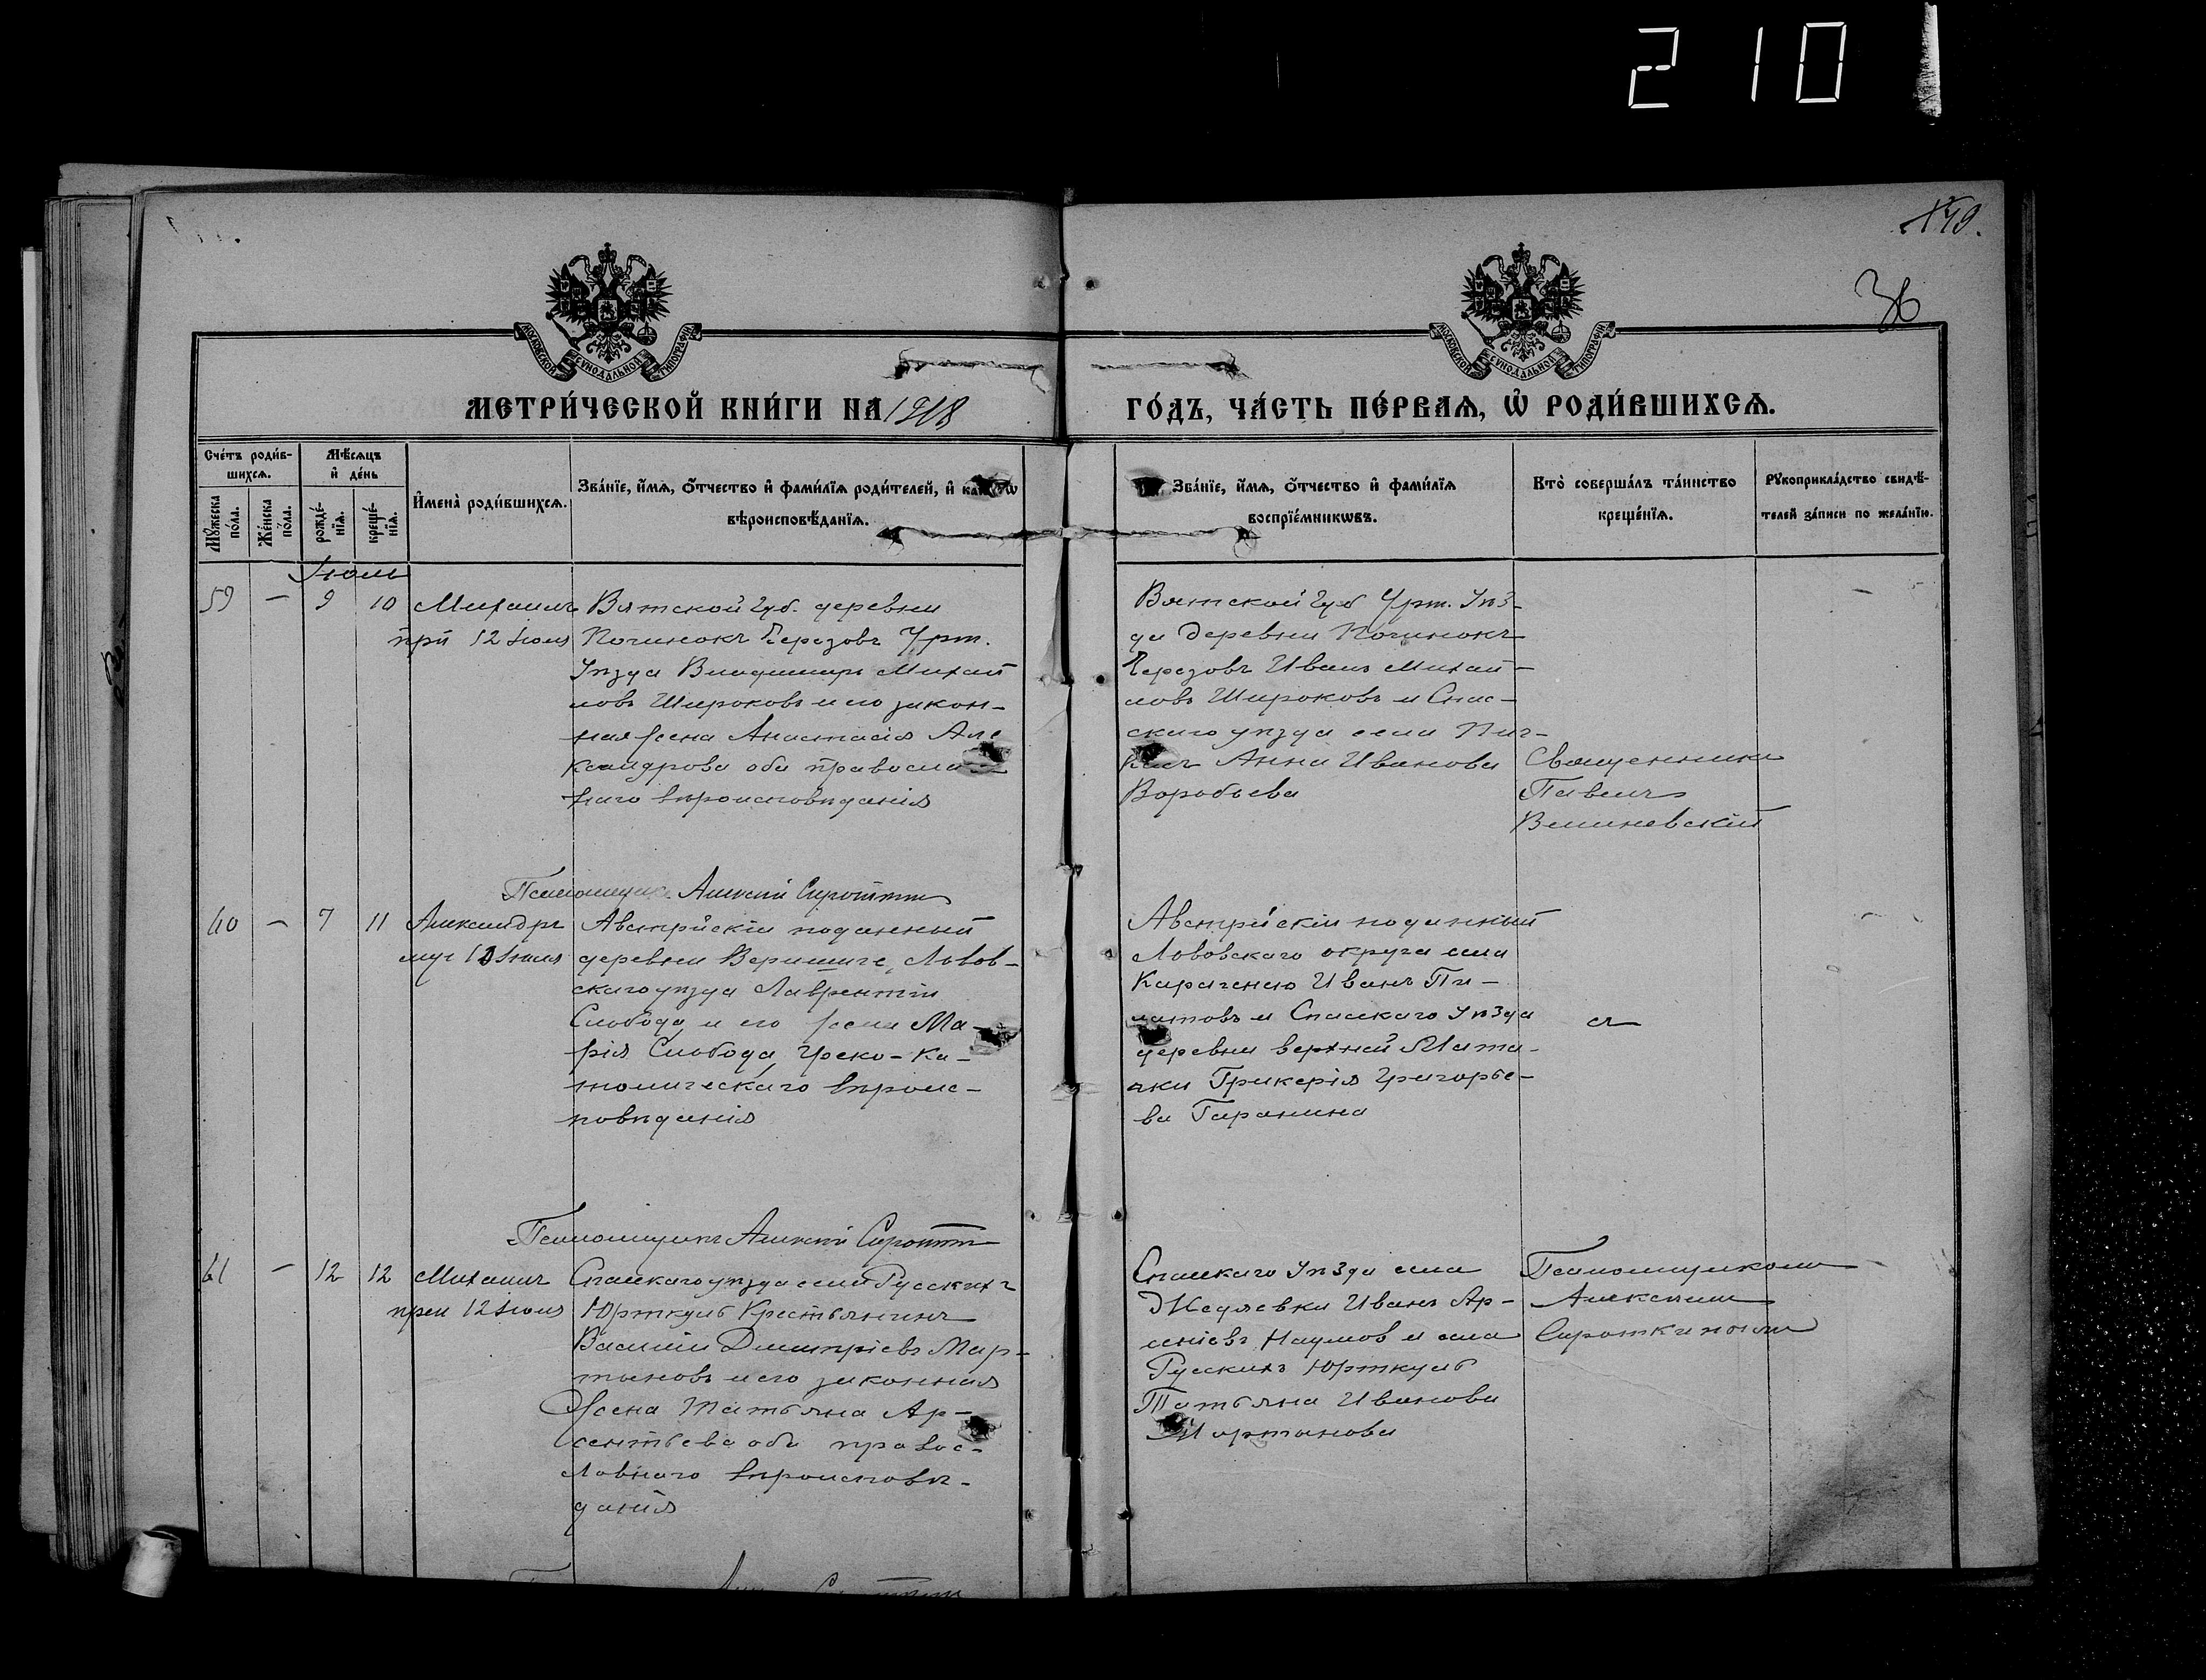 2101
149.
36
МОСКОВСКОЙ СѴНОДАЛЬНОЙ ТИПОГРАФІИ
МОСКОВСКОЙ СѴНОДАЛЬНОЙ ТИПОГРАФІИ
МЕТРИ́ЧЕСКОЙ КНИ́ГИ НА 1918
ГО́ДЪ, ЧА́СТЬ ПЕ́РВАѦ, Ѡ҆ РОДИ́ВШИХСѦ.
Сче́тъ роди́в-
шихсѧ.
Мꙋ́жеска по́ла.
Же́нска по́ла.
Мѣ́сѧцъ
и҆ де́нь
рожде́-
нїѧ.
креще́-
нїѧ.
И҆мена̀ роди́вшихсѧ.
Зва́нїе, и҆́мѧ, ѻ҆́тчество и҆ фами́лїѧ роди́телей, и҆
вѣроисповѣ́данїѧ.
Зва́нїе, и҆́мѧ, ѻ҆́тчество и҆ фами́лїѧ
воспрїе́мникѡвъ.
Кто̀ соверша́лъ та́инство
креще́нїѧ.
Рꙋкоприкла́дство свидѣ́-
телей за́писи по жела́нїю.
Іюль
59 – 9 10 Михаилъ
при 12 Іюля
Вятской губ. деревни
Починокъ Березовъ Урж.
Уѣзда Владимиръ Михай
ловъ Широковъ и его закон-
ная жена Анастасія Але
ксандрова оба православ
наго вѣроисповѣданія
Вятской губ Урж. Уѣз-
да деревни Починокъ
Березовъ Иванъ Михай-
ловъ Широковъ и Спас-
скаго уѣзда села
Анна Иванова
Воробьева
Священникъ
Павелъ
Вешневскій
Псаломщикъ Алексѣй Сироткинъ
60 – 7 11 Александръ
муч 13 Іюля
Австрійскій подданный
деревни Львов-
скаго уѣзда Лаврентій
Слобода и его жена Ма-
рія Слобода, Греко-ка-
толическаго вѣроис-
повѣданія
Австрійскій подданный
Львовскаго округа села
Иванъ
и Спасскаго Уѣзда
деревни верхней Мата-
ки Григорье-
ва Гаранина
Псаломщикъ Алексѣй Сироткинъ
61 – 12 12 Михаилъ
преп 12 Іюля
Спасскаго уѣзда села Русскихъ
Юрткуль Крестьянинъ
Василій Дмитріевъ Мар-
тыновъ и его законная
Жена Татьяна Ар-
сентьева оба правос-
лавнаго вѣроисповѣ-
данія
Спасскаго Уѣзда села
Жедяевки Иванъ Ар-
сеніевъ Наумов и села
Русскихъ Юрткуль
Татьяна Иванова
Мартынова
Псаломщикомъ
Алексѣемъ
Сироткинымъ